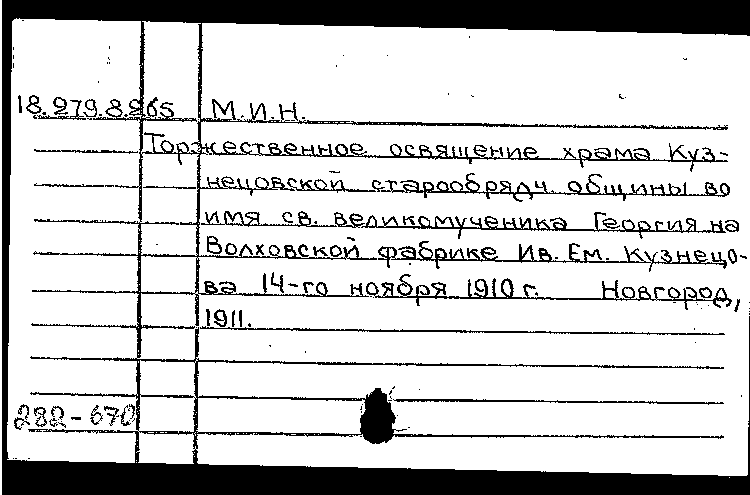 18.279.8.265 М.И.Н.
Торжественное освящение храма Куз-
нецовской старообрядч. общины во
имя св. великомученика Георгия на
Волховской фабрике Ив. Ем. Кузнецо-
ва 14-го ноября 1910 г. Новгород,
1911.
282-670